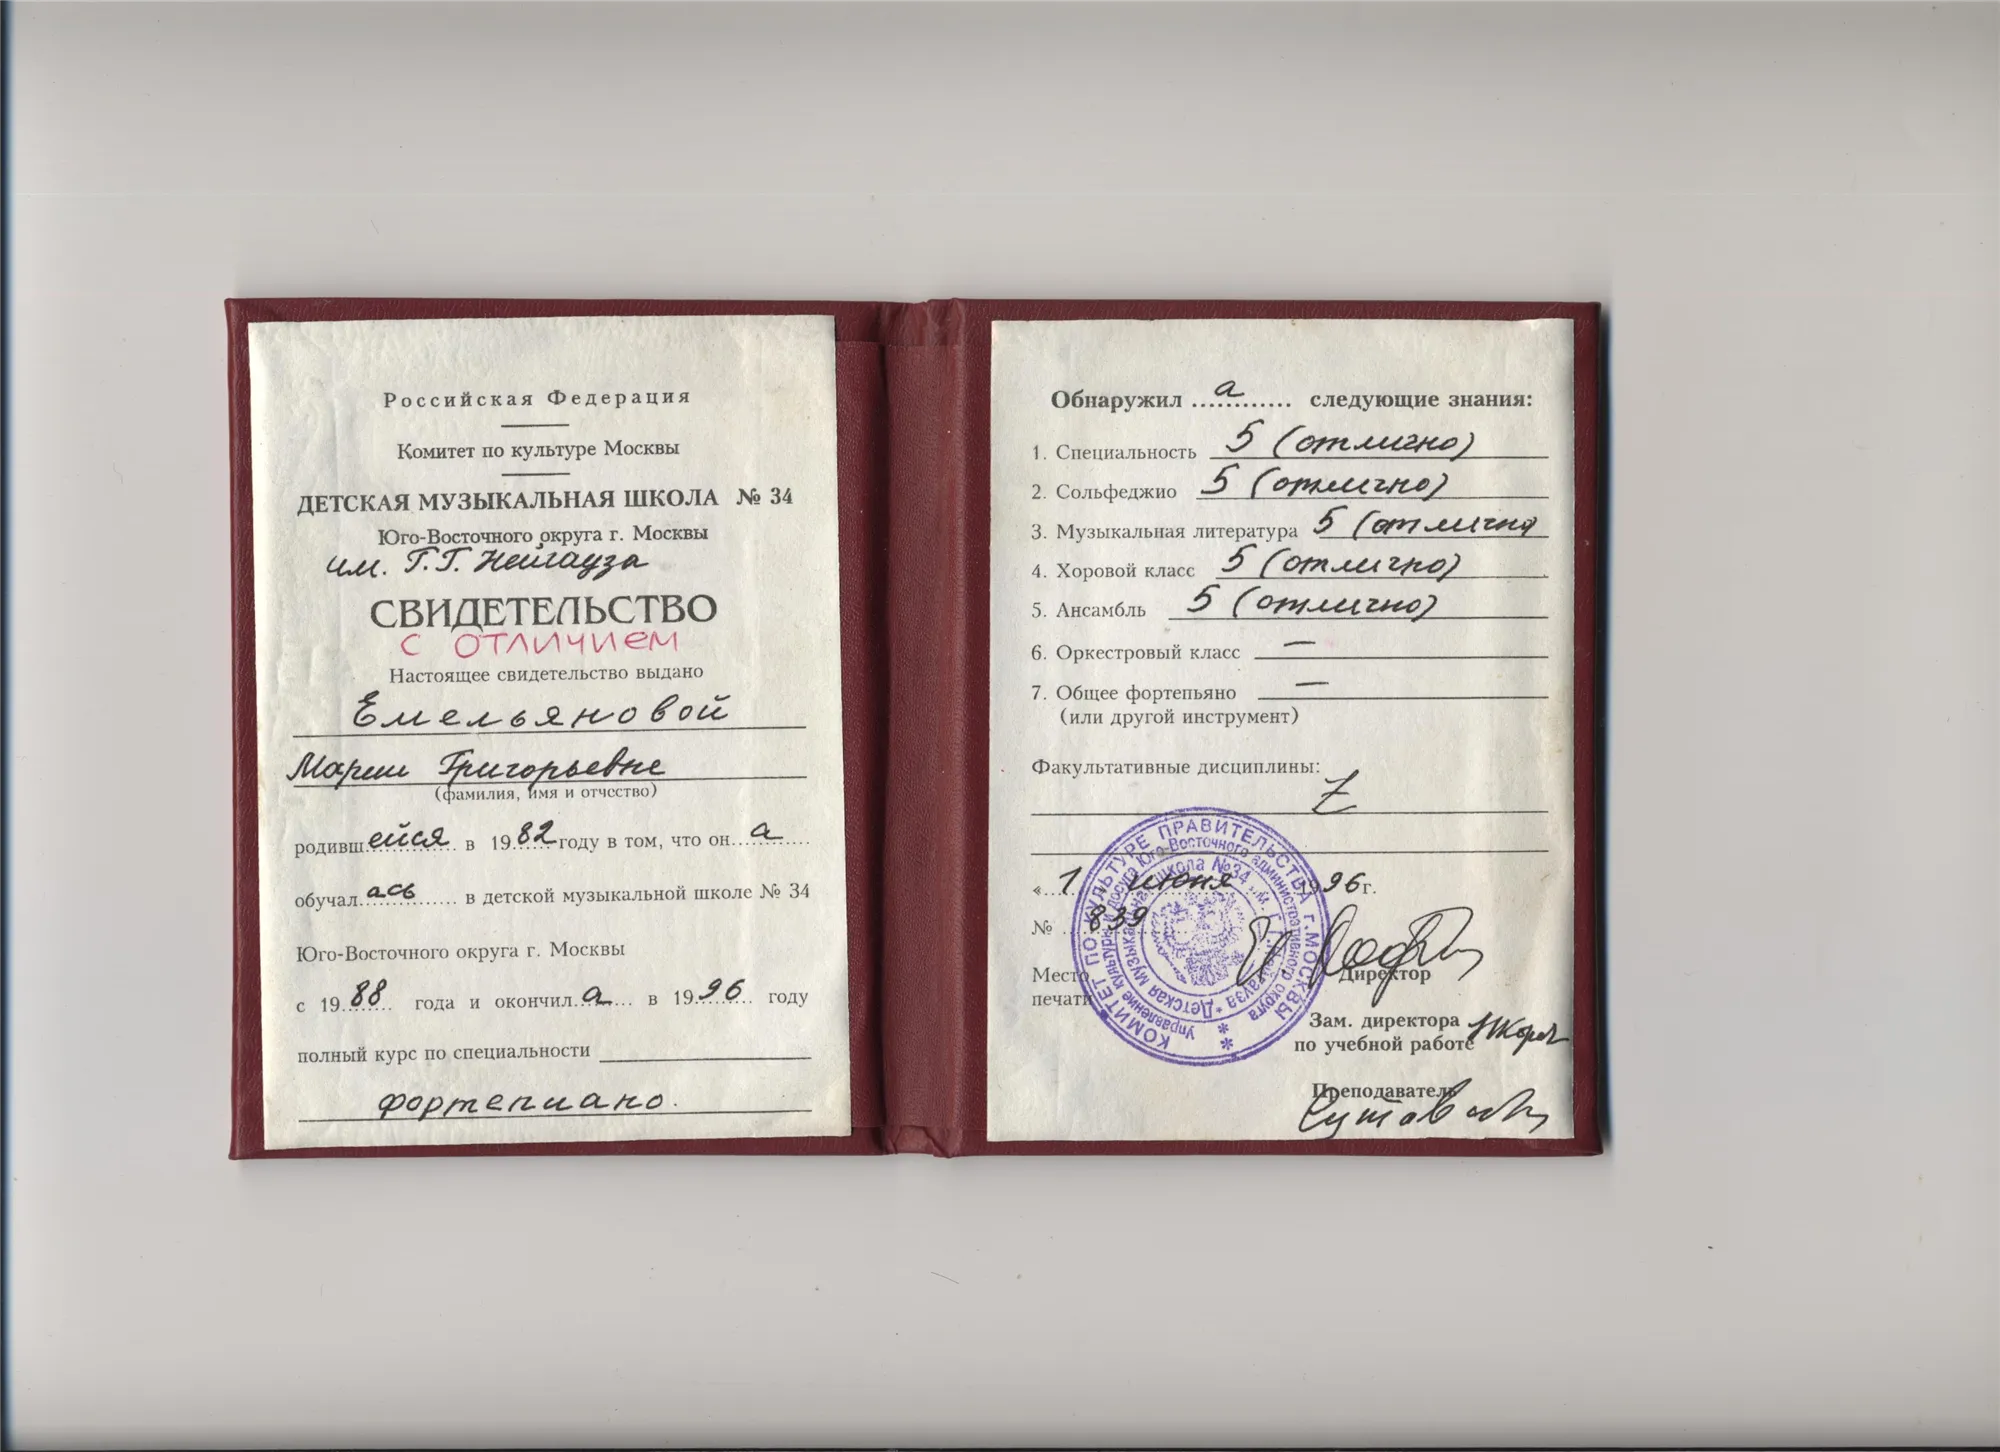 Российская Федерация
Комитет по культуре Москвы
ДЕТСКАЯ МУЗЫКАЛЬНАЯ ШКОЛА № 34
Юго-Восточного округа г. Москвы
им. Г.Г. Нейгауза
СВИДЕТЕЛЬСТВО
С ОТЛИЧИЕМ
Настоящее свидетельство выдано
Емельяновой
Марии Григорьевне
(фамилия, имя и отчество)
родившейся в 1982 году в том, что она
обучалась в детской музыкальной школе № 34
Юго-Восточного округа г. Москвы
с 1988 года и окончила в 1996 году
полный курс по специальности
фортепиано.
Обнаружила следующие знания:
1. Специальность 5 (отлично)
2. Сольфеджио 5 (отлично)
3. Музыкальная литература 5 (отлично)
4. Хоровой класс 5 (отлично)
5. Ансамбль 5 (отлично)
6. Оркестровый класс —
7. Общее фортепьяно —
(или другой инструмент)
Факультативные дисциплины:
«1 июня 1996 г.
№ 839
Место
печати
Директор
Зам. директора
по учебной работе
Преподаватель
КОМИТЕТ ПО КУЛЬТУРЕ ПРАВИТЕЛЬСТВА Г. МОСКВЫ
Управление культуры и досуга Юго-Восточного административного округа
Детская музыкальная школа №34 им. Г.Г. Нейгауза